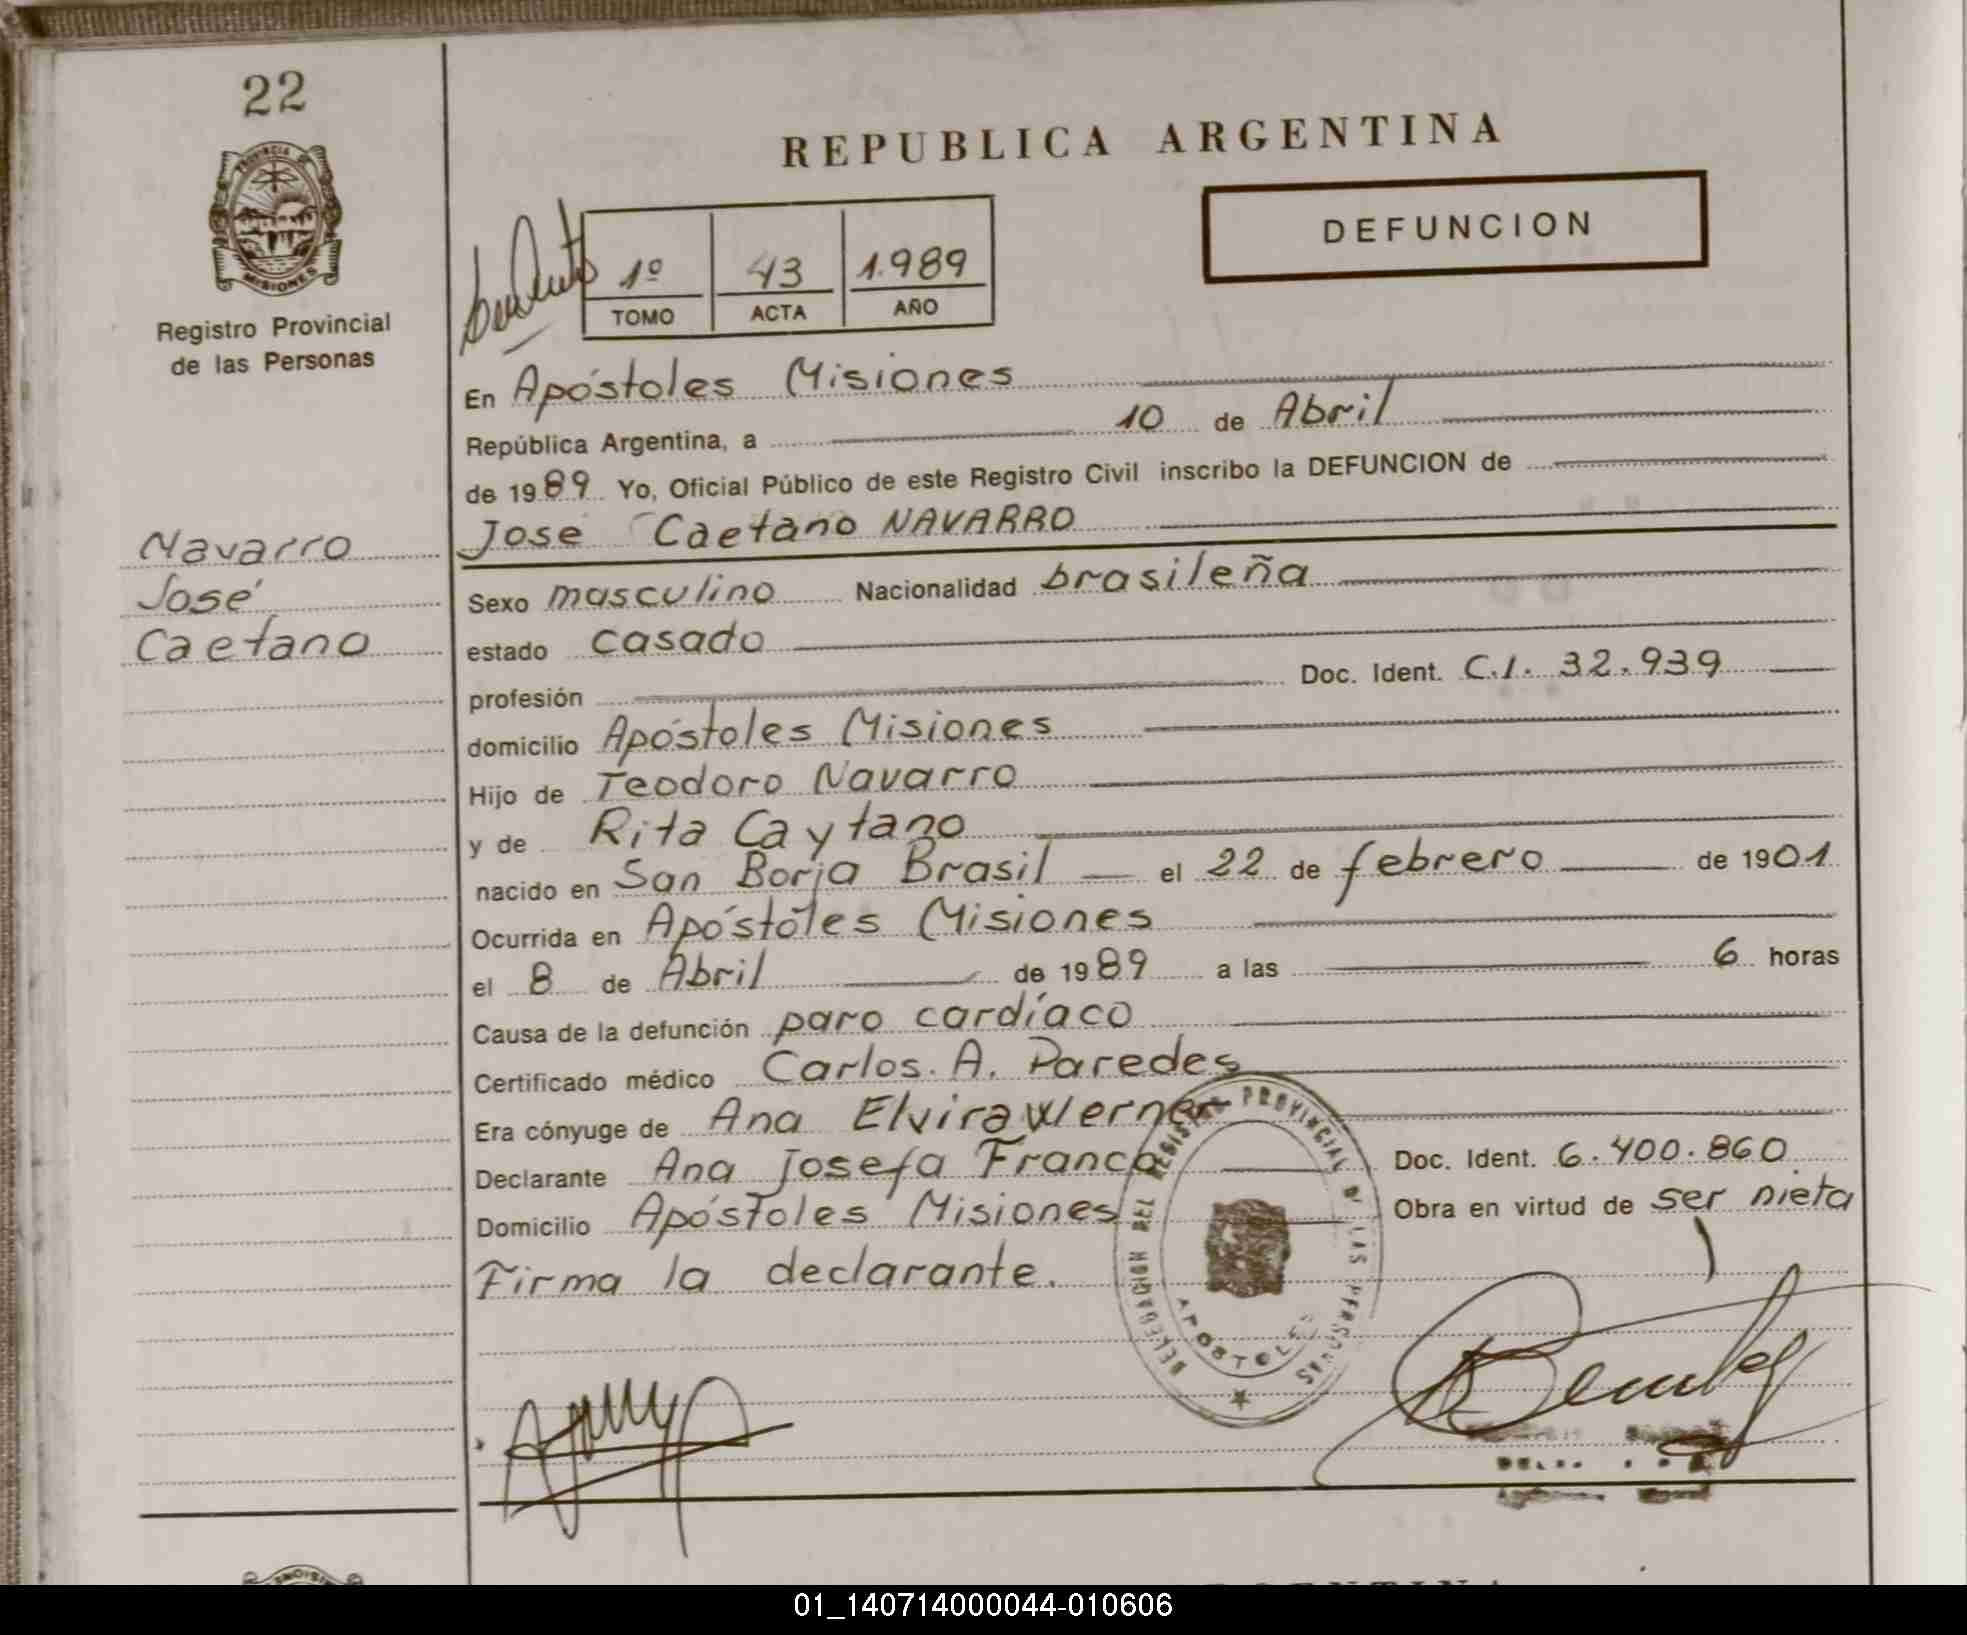 22
PROVINCIA DE
MISIONES
Registro Provincial
de las Personas
REPUBLICA ARGENTINA
DEFUNCION
1º 43 1.989
TOMO ACTA AÑO
En Apóstoles Misiones
República Argentina, a 10 de Abril
de 1989 Yo, Oficial Público de este Registro Civil inscribo la DEFUNCION de
José Caetano NAVARRO
Navarro
José
Caetano
Sexo masculino Nacionalidad brasileña
estado casado
profesión Doc. Ident. C.I. 32.939
domicilio Apóstoles Misiones
Hijo de Teodoro Navarro
y de Rita Caytano
nacido en San Borja Brasil el 22 de febrero de 1901
Ocurrida en Apóstoles Misiones
el 8 de Abril de 1989 a las 6 horas
Causa de la defunción paro cardíaco
Certificado médico Carlos. A. Paredes
Era cónyuge de Ana Elvira Werner
Declarante Ana Josefa Franco Doc. Ident. 6.400.860
Domicilio Apóstoles Misiones Obra en virtud de ser nieta
Firma la declarante.
DELEGACION DEL REGISTRO PROVINCIAL D/ LAS PERSONAS
APOSTOLES
01_140714000044-010606